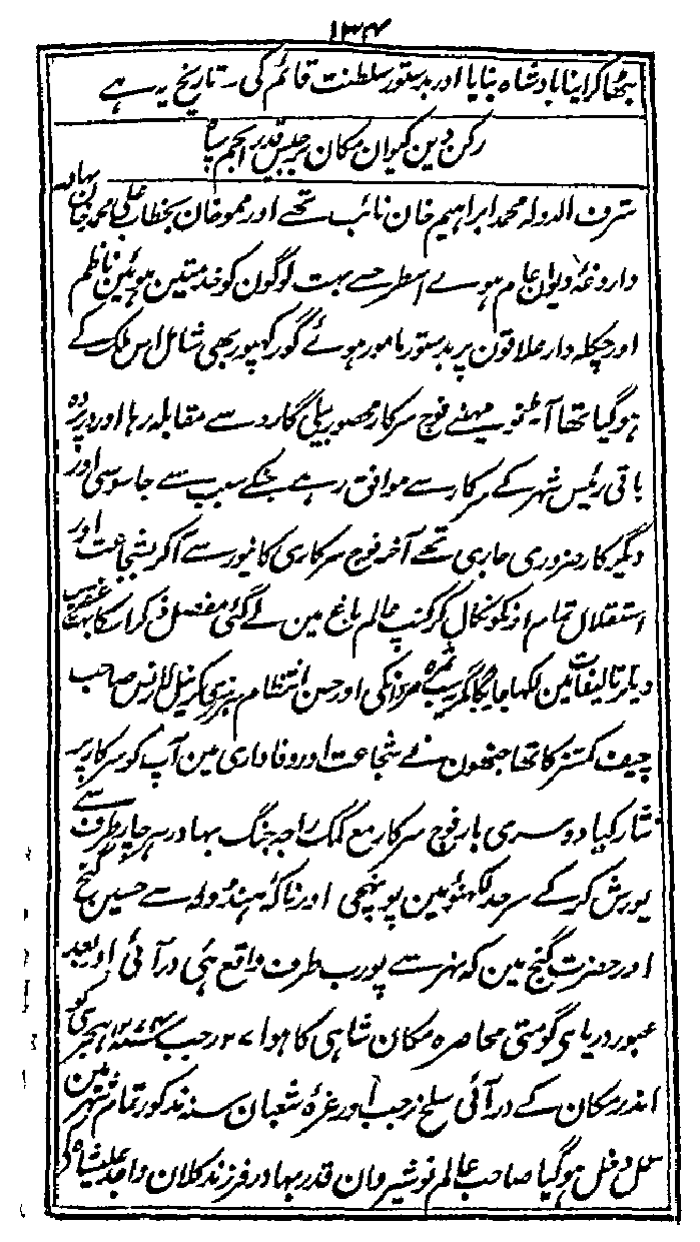 ۱۳۴
بٹھا کر اپنا بادشاہ بنایا اور بدستور سلطنت قائم کی۔ تاریخ یہ ہے
رکن دین کیوان مکان برجیس قدر انجم سپاہ
شرف الدولہ محمد ابراہیم خان نائب تھے اور ممو خان بخطاب علی محمد خان بہادر
داروغۂ دیوان عام ہوے اسطرحسے بہت لوگون کو خدمتین ہوئین ناظم
اور چکلہ دار علاقون پر بدستور مامور ہوئے گورکھپور بھی شامل اس ملک کے
ہوگیا تھا آٹھ نو مہینے فوج سرکار محصور بیلی گارد سے مقابلہ رہا اور در پردہ
باقی رئیس شہر کے سرکار سے موافق رہے جنکے سبب سے جاسوسی اور
دیگر کار ضروری جاری تھے آخر فوج سرکاری کانپور سے آکر بشجاعت اور
استقلال تمام انکو نکال کر کنپ عالم باغ مین لے گئی مفصل ذکر اسکا بہت عنقریب
دیگر تالیفات مین لکھا جائیگا مگر یہ سب ثمرہ مردانگی اور حسن انتظام ہنری کرنیل لارنس صاحب
چیف کمشنر کا تھا جنھون نے شجاعت اور وفاداری مین آپ کو سرکار پر
نثار کیا دوسری بار فوج سرکار مع کمک راجہ جنگ بہادر ہر چار طرف سے
یورش کرکے سرحد لکھنؤ مین پونہچی اور ناکۂ ہنڈولہ سے حسین گنج
اور حضرت گنج مین کہ نہر سے پورب طرف واقع ہی در آئی اور بعد
عبور دریاے گومتی محاصرہ مکان شاہی کا ہوا ۲۷ رجب سنہ ۱۲۷۴ ہجری کو
اندر مکان کے در آئی سلخ رجب اور غرۂ شعبان سنہ مذکور تمام شہر مین
عمل دخل ہوگیا صاحب عالم نوشیروان قدر بہادر فرزند کلان واجد علیشاہ کے